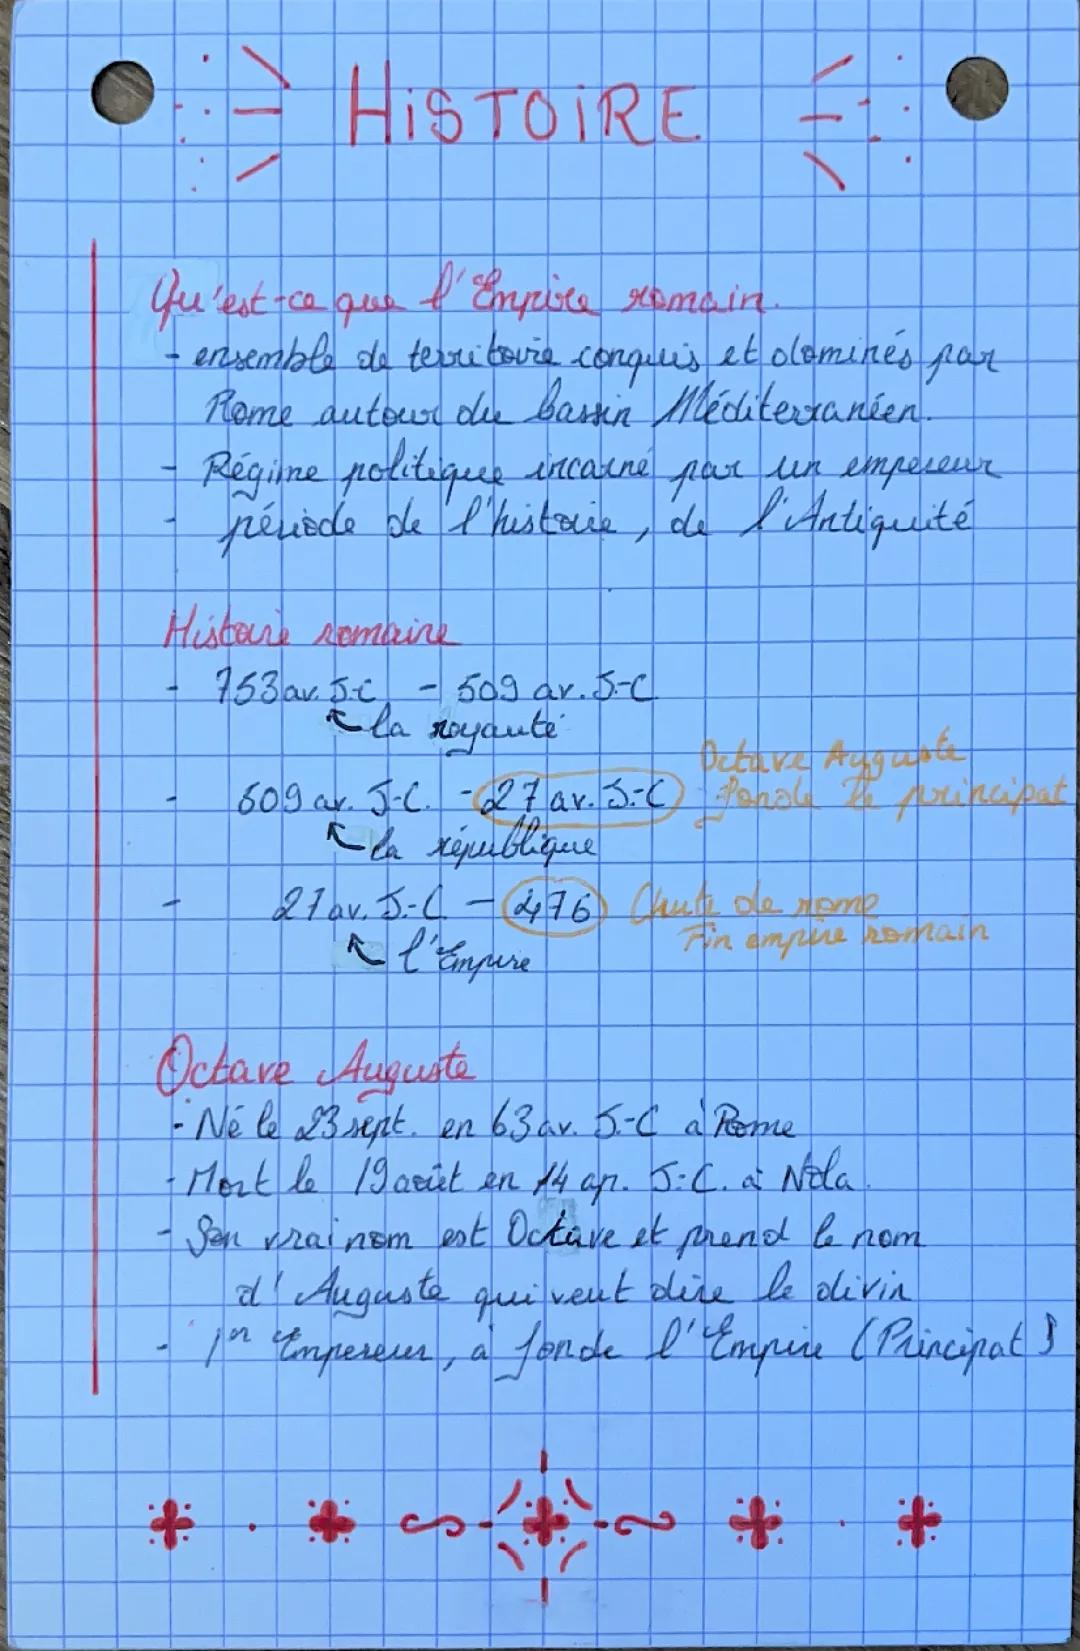 HiSTOiRE
Qu'est-ce que l'Empire romain.
- ensemble de territoire conquis et dominés par
Rome autour du bassin Méditerranéen.
- Régime politique incarné par un empereur
- période de l'histoire, de l'Antiquité
Histoire romaine
- 753 av. J-C - 509 av. J-C.
la royauté
Octave Auguste
- 509 av. J-C. - 27 av. J.-C fonde le principat
la république
- 27 av. J.-C. - 476 Chute de rome
Fin empire romain
l'Empire
Octave Auguste
- Né le 23 sept. en 63 av. J.-C à Rome
- Mort le 19 août en 14 ap. J.-C. à Nola.
- Son vrai nom est Octave et prend le nom
d'Auguste qui veut dire le divin
- 1er Empereur, a fonde l'Empire (Principat)